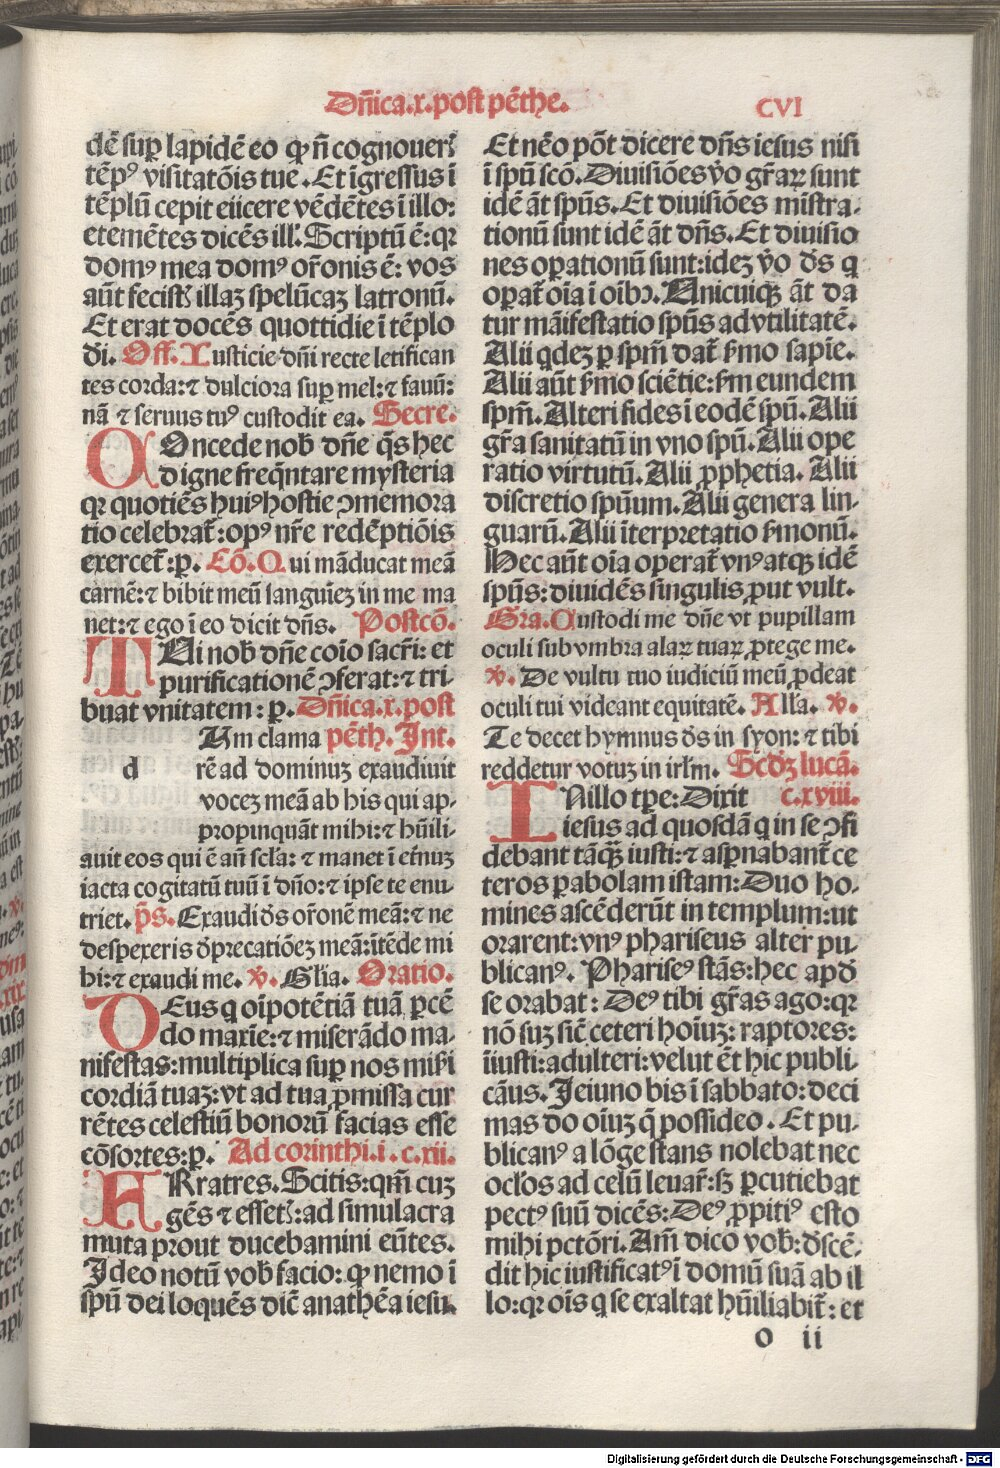 Dñica.x.post pēthe.
CVI
dē suꝑ lapidē eo ꝙ ñ cognoueri̾t
tēpꝰ visitatōis tue. Et īgressus ī
tēplū cepit eiicere vēdētes ī illo:
et emētes dicēs ill'. Scriptū ē: qꝛ
domꝰ mea domꝰ or̄onis ē: vos
aūt fecist' illaꝫ spelūcaꝫ latronū.
Et erat docēs quottidie ī tēplo
d̄i. Off. Iusticie dñi recte letifican
tes corda: ⁊ dulciora suꝑ mel: ⁊ fauū:
nā ⁊ seruus tuꝰ custodit ea. Secre.
COncede nob̄ dñe q̄s hec
digne freq̄ntare mysteria
qꝛ quotiēs huiꝰ hostie ꝯmemora
tio celebrat̄: opꝰ nr̄e redēptiōis
exercet̄: p. Cō. Qui māducat meā
carnē: ⁊ bibit meū sanguīeꝫ in me ma
net: ⁊ ego ī eo dicit dñs. Postcō.
TUi nob̄ dñe coīo sacr̄i: et
purificationē ꝯferat: ⁊ tri
buat vnitatem: p. Dñica.x.post
Um clama pēth. Int.
d rē ad dominuꝫ exaudiuit
voceꝫ meā ab his qui ap-
propinquāt mihi: ⁊ hūili-
auit eos qui ē añ scl̄a: ⁊ manet ī et̄nuꝫ
iacta cogitatū tuū ī dño: ⁊ ipse te enu
triet. p̄s. Exaudi d̄s or̄onē meā: ⁊ ne
despexeris d̄precatiōeꝫ meā: ītēde mi
hi: ⁊ exaudi me. ℣. Gl̄ia. Oratio.
DEus q oīpotētiā tuā ꝑcē
do maxīe: ⁊ miserādo ma-
nifestas: multiplica suꝑ nos mīsi
cordiā tuaꝫ: vt ad tua ꝓmissa cur
rētes celestiū bonorū facias esse
cōsortes: p. Ad corinthi.i.c.xii.
FRatres. Scitis: qm̄ cuꝫ
gēs ⁊ esset': ad simulacra
muta prout ducebamini eūtes.
Ideo notū vob̄ facio: ꝙ nemo ī
spū dei loquēs dic̄ anathēa iesu.
Et nēo pōt dicere dñs iesus nisi
ī spū scō. Diuisiōes v̄o gr̄aꝝ sunt
idē āt spūs. Et diuisiōes mīstra-
tionū sunt idē āt dñs. Et diuisio
nes oꝑationū sunt: ideꝫ v̄o d̄s q
oꝑat̄ oīa ī oībꝫ. Unicuiqꝫ āt da
tur māifestatio spūs ad vtilitatē.
Alii qdeꝫ ꝑ spm̄ dat̄ s̄mo sapīe.
Alii aūt s̄mo sciētie: s̄m eundem
spm̄. Alteri fides ī eodē spū. Alii
gr̄a sanitatū in vno spū. Alii ope
ratio virtutū. Alii ꝓphetia. Alii
discretio spūum. Alii genera lin-
guarū. Alii īterpretatio s̄monū.
Hec aūt oīa operat̄ vnꝰ atqꝫ idē
spūs: diuidēs singulis ꝓut vult.
Gra. Custodi me dñe vt pupillam
oculi sub vmbra alaꝝ tuaꝝ ꝓtege me.
℣. De vultu tuo iudiciū meū ꝓdeat
oculi tui videant equitatē. Alla. ℣.
Te decet hymnus d̄s in syon: ⁊ tibi
reddetur votuꝫ in irlm̄. Scd̄ꝫ lucā.
IN illo tp̄e: Dixit c.xviii.
iesus ad quosdā q in se ꝯfi
debant tāqꝫ iusti: ⁊ asꝑnabant̄ ce
teros ꝑabolam istam: Duo ho-
mines ascēderūt in templum: ut
orarent: vnꝰ phariseus alter pu-
blicanꝰ. Phariseꝰ stās: hec apd̄
se orabat: Deꝰ tibi gr̄as ago: qꝛ
nō suꝫ sic̄ ceteri hoīuꝫ: raptores:
īiusti: adulteri: velut ēt hic publi-
cāus. Ieiuno bis ī sabbato: deci
mas do oīuꝫ q̄ possideo. Et pu-
blicanꝰ a lōge stans nolebat nec
oclos ad celū leuar̄: sꝫ ꝑcutiebat
pectꝰ suū dicēs: Deꝰ ꝓpitiꝰ esto
mihi pctōri. Am̄ dico vob̄: d̄scē-
dit hic iustificatꝰ ī domū suā ab il
lo: qꝛ oīs q se exaltat hūiliabit̄: et
o ii
Digitalisierung gefördert durch die Deutsche Forschungsgemeinschaft - DFG